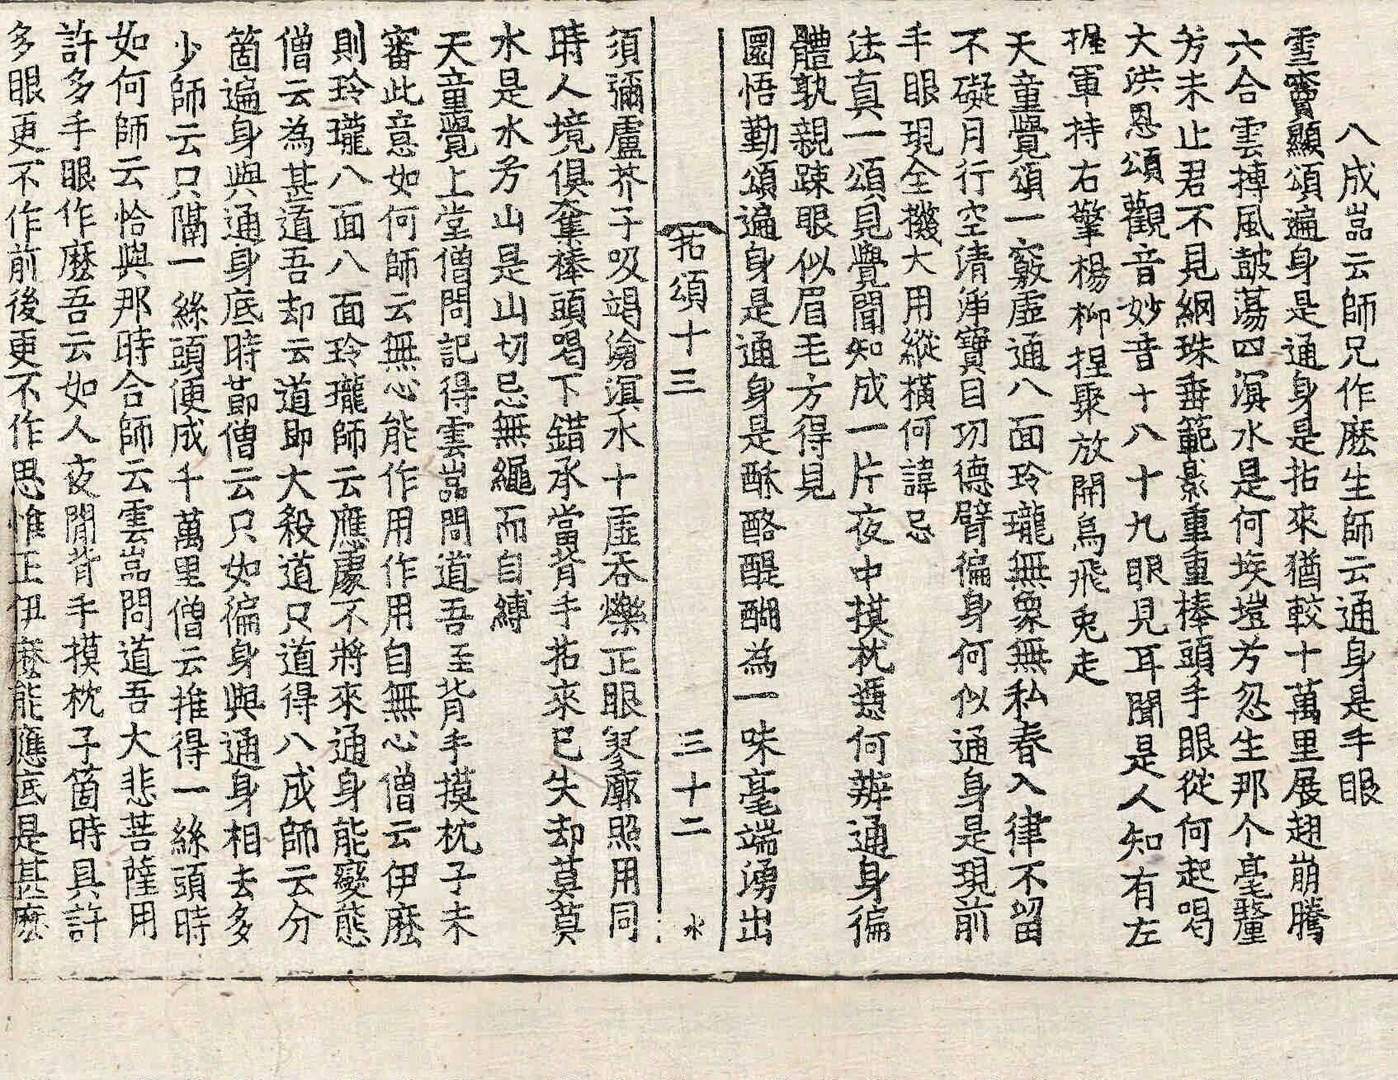 八成嵓云師兄作麽生師云通身是手眼
雪竇顯頌遍身是通身是拈來猶較十萬里展翅崩騰
六合雲摶風皷蕩四溟水是何埃壒兮忽生那个毫釐
兮未止君不見網珠垂範影重重棒頭手眼從何起喝
大洪恩頌觀音妙音十八十九眼見耳聞是人知有左
握軍持右擎楊柳捏聚放開烏飛兎走
天童覺頌一竅虛通八面玲瓏無象無私春入律不留
不礙月行空清淨寶目功德臂徧身何似通身是現前
手眼現全機大用縱橫何諱忌
法真一頌見覺聞知成一片夜中摸枕憑何辨通身徧
體孰親踈眼似眉毛方得見
圜悟勤頌遍身是通身是酥酪醍醐為一味毫端湧出
拈頌十三 三十二 水
須彌盧芥子吸竭滄溟水十虛吞爍正眼寥廓照用同
時人境俱奪棒頭喝下錯承當背手拈來已失却莫莫
水是水兮山是山切忌無繩而自縛
天童覺上堂僧問記得雲嵓問道吾至背手摸枕子未
審此意如何師云無心能作用作用自無心僧云伊麽
則玲瓏八面八面玲瓏師云應處不將來通身能變態
僧云為甚道吾却云道即大殺道只道得八成師云分
箇遍身與通身底時節僧云只如徧身與通身相去多
少師云只隔一絲頭便成千萬里僧云推得一絲頭時
如何師云恰與那時合師云雲嵓問道吾大悲菩薩用
許多手眼作麽吾云如人夜間背手摸枕子箇時具許
多眼更不作前後更不作思惟正伊麽能應底是甚麽